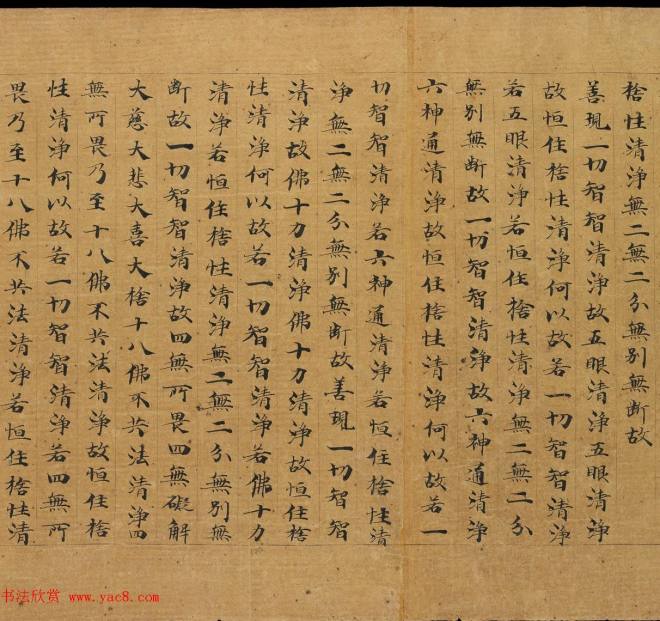 捨性清淨無二無二分無別無斷故
善現一切智智清淨故五眼清淨五眼清淨
故恒住捨性清淨何以故若一切智智清淨
若五眼清淨若恒住捨性清淨無二無二分
無別無斷故一切智智清淨故六神通清淨
六神通清淨故恒住捨性清淨何以故若一
切智智清淨若六神通清淨若恒住捨性清
淨無二無二分無別無斷故善現一切智智
清淨故佛十力清淨佛十力清淨故恒住捨
性清淨何以故若一切智智清淨若佛十力
清淨若恒住捨性清淨無二無二分無別無
斷故一切智智清淨故四無所畏四無礙解
大慈大悲大喜大捨十八佛不共法清淨四
無所畏乃至十八佛不共法清淨故恒住捨
性清淨何以故若一切智智清淨若四無所
畏乃至十八佛不共法清淨若恒住捨性清
书法欣赏 www.yac8.com